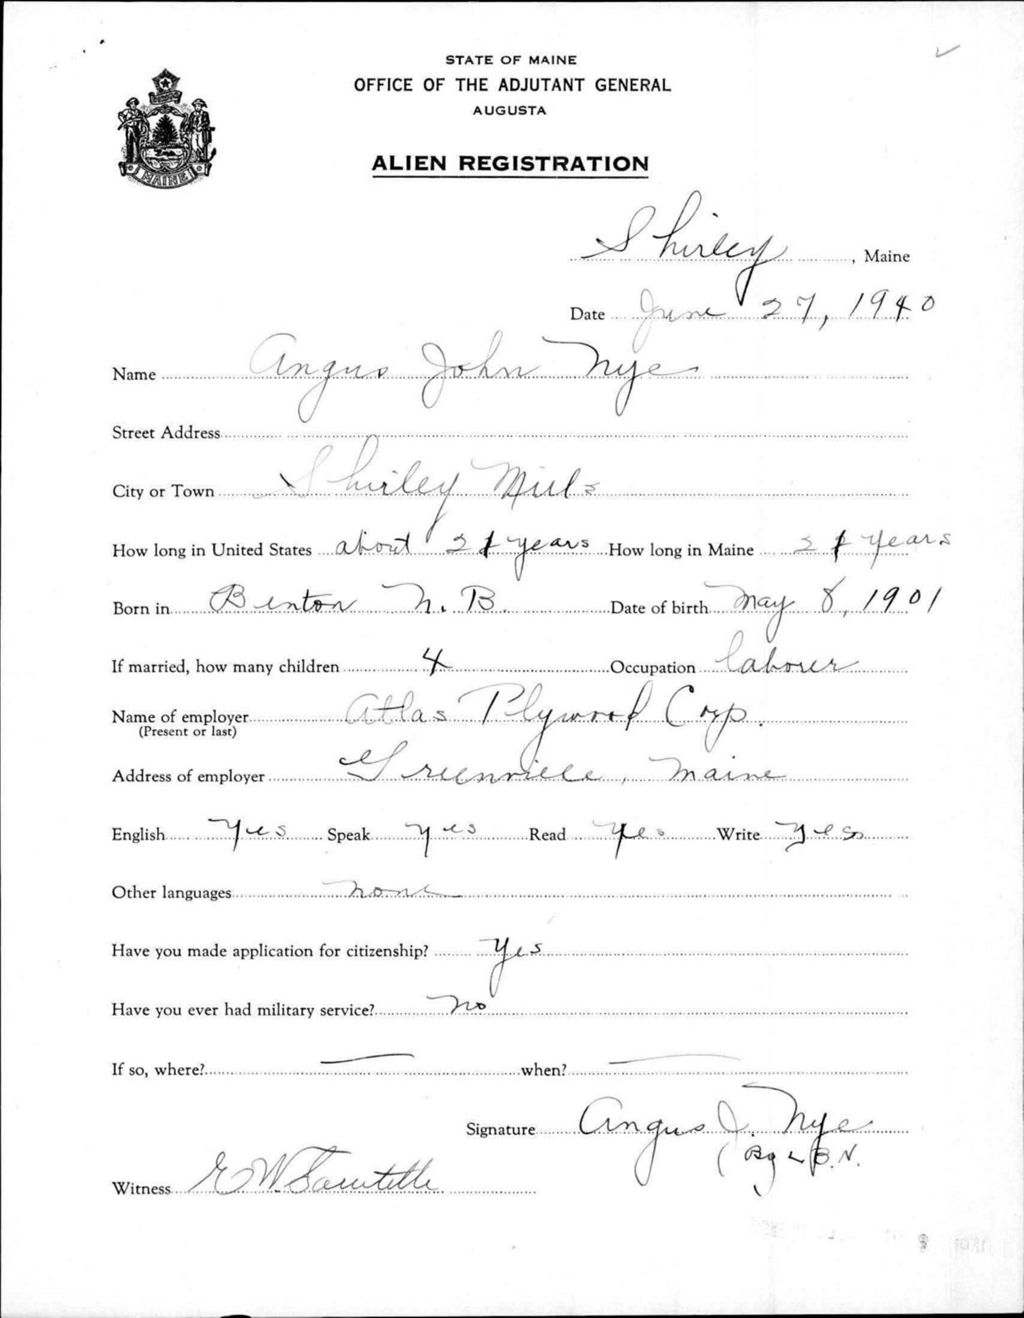 STATE OF MAINE
OFFICE OF THE ADJUTANT GENERAL
AUGUSTA
ALIEN REGISTRATION
MAINE
Shirley, Maine
Date June 27, 1940
Name Angus John Nye
Street Address
City or Town Shirley Mills
How long in United States about 21 years How long in Maine 21 years
Born in Benton N.B. Date of birth May 8, 1901
If married, how many children 4 Occupation laborer
Name of employer Atlas Plywood Corp.
(Present or last)
Address of employer Greenville, Maine
English Yes Speak yes Read Yes Write yes
Other languages none
Have you made application for citizenship? Yes
Have you ever had military service? No
If so, where? — when? —
Signature Angus J. Nye
(By L B.N.
Witness E W Sawtelle